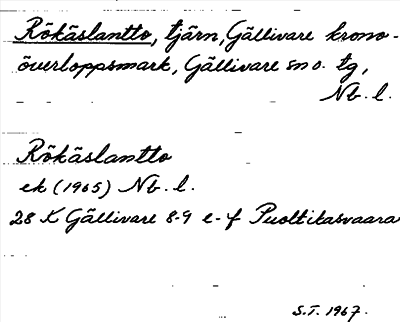 Rökäslantto, tjärn, Gällivare krono-
överloppsmark, Gällivare sn o. tg,
Nb. l.
Rökäslantto
ek (1965) Nb. l.
28 K Gällivare 8-9 e-f Puoltikasvaara
S.T. 1967.